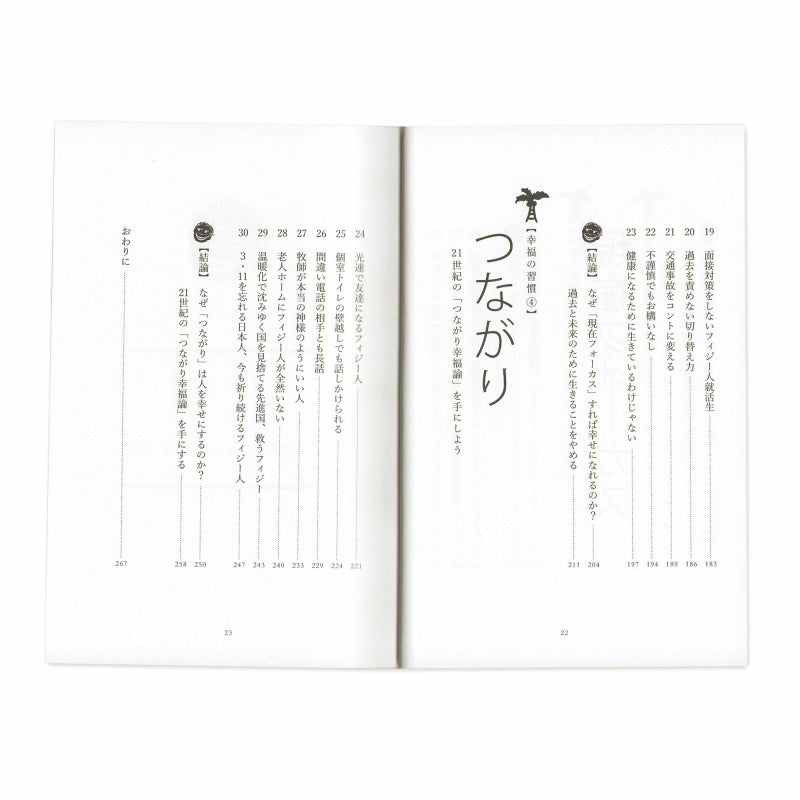 19 面接対策をしないフィジー人就活生 183
20 過去を責めない切り替え力 186
21 交通事故をコントに変える 189
22 不謹慎でもお構いなし 194
23 健康になるために生きているわけじゃない 197
【結論】 なぜ「現在フォーカス」すれば幸せになれるのか？ 204
過去と未来のために生きることをやめる 211
【幸福の習慣④】
つながり
21世紀の「つながり幸福論」を手にしよう
22
24 光速で友達になるフィジー人 221
25 個室トイレの壁越しでも話しかけられる 224
26 間違い電話の相手とも長話 229
27 牧師が本当の神様のようにいい人 233
28 老人ホームにフィジー人が全然いない 240
29 温暖化で沈みゆく国を見捨てる先進国、救うフィジー 243
30 3・11を忘れる日本人、今も祈り続けるフィジー人 247
【結論】 なぜ「つながり」は人を幸せにするのか？ 250
21世紀の「つながり幸福論」を手にする 258
おわりに 267
23